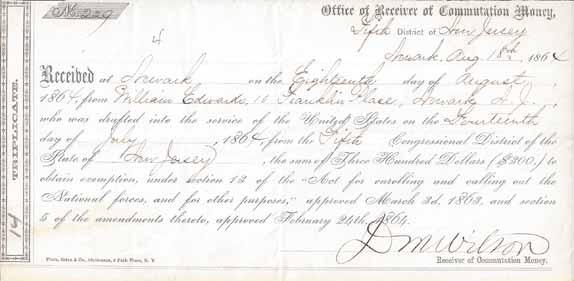 No. 229
Office of Receiver of Commutation Money,
Fifth District of New Jersey
4
Newark, Aug. 18th, 1864
Received at Newark on the Eighteenth day of August,
1864, from William Edwards, 16 Franklin Place, Newark N.J.,
who was drafted into the service of the United States on the Fourteenth
day of July, 1864, from the Fifth Congressional District of the
State of New Jersey, the sum of Three Hundred Dollars ($300.) to
obtain exemption, under section 12 of the "Act for enrolling and calling out the
National forces, and for other purposes," approved March 3d, 1863, and section
5 of the amendments thereto, approved February 24th, 1864.
D M Wilson
Receiver of Commutation Money.
Park Place, N. Y.
TRIPLICATE.
14